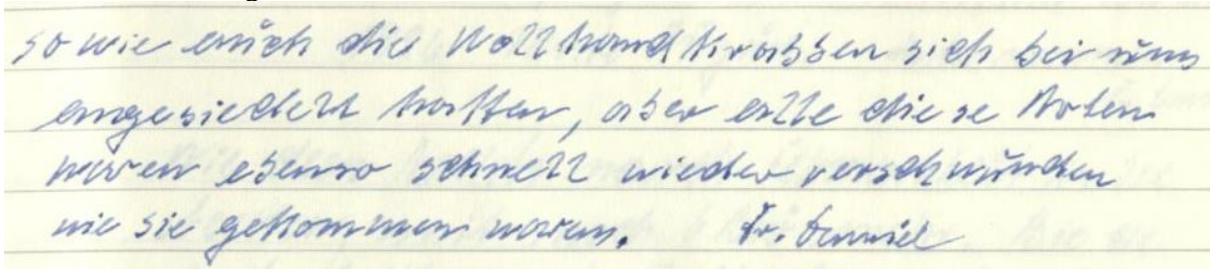 so wie auch die Wollhandkrabben sich bei uns
angesiedelt hatten, aber alle diese Arten
waren ebenso schnell wieder verschwunden
wie sie gekommen waren. Fr. Daniel